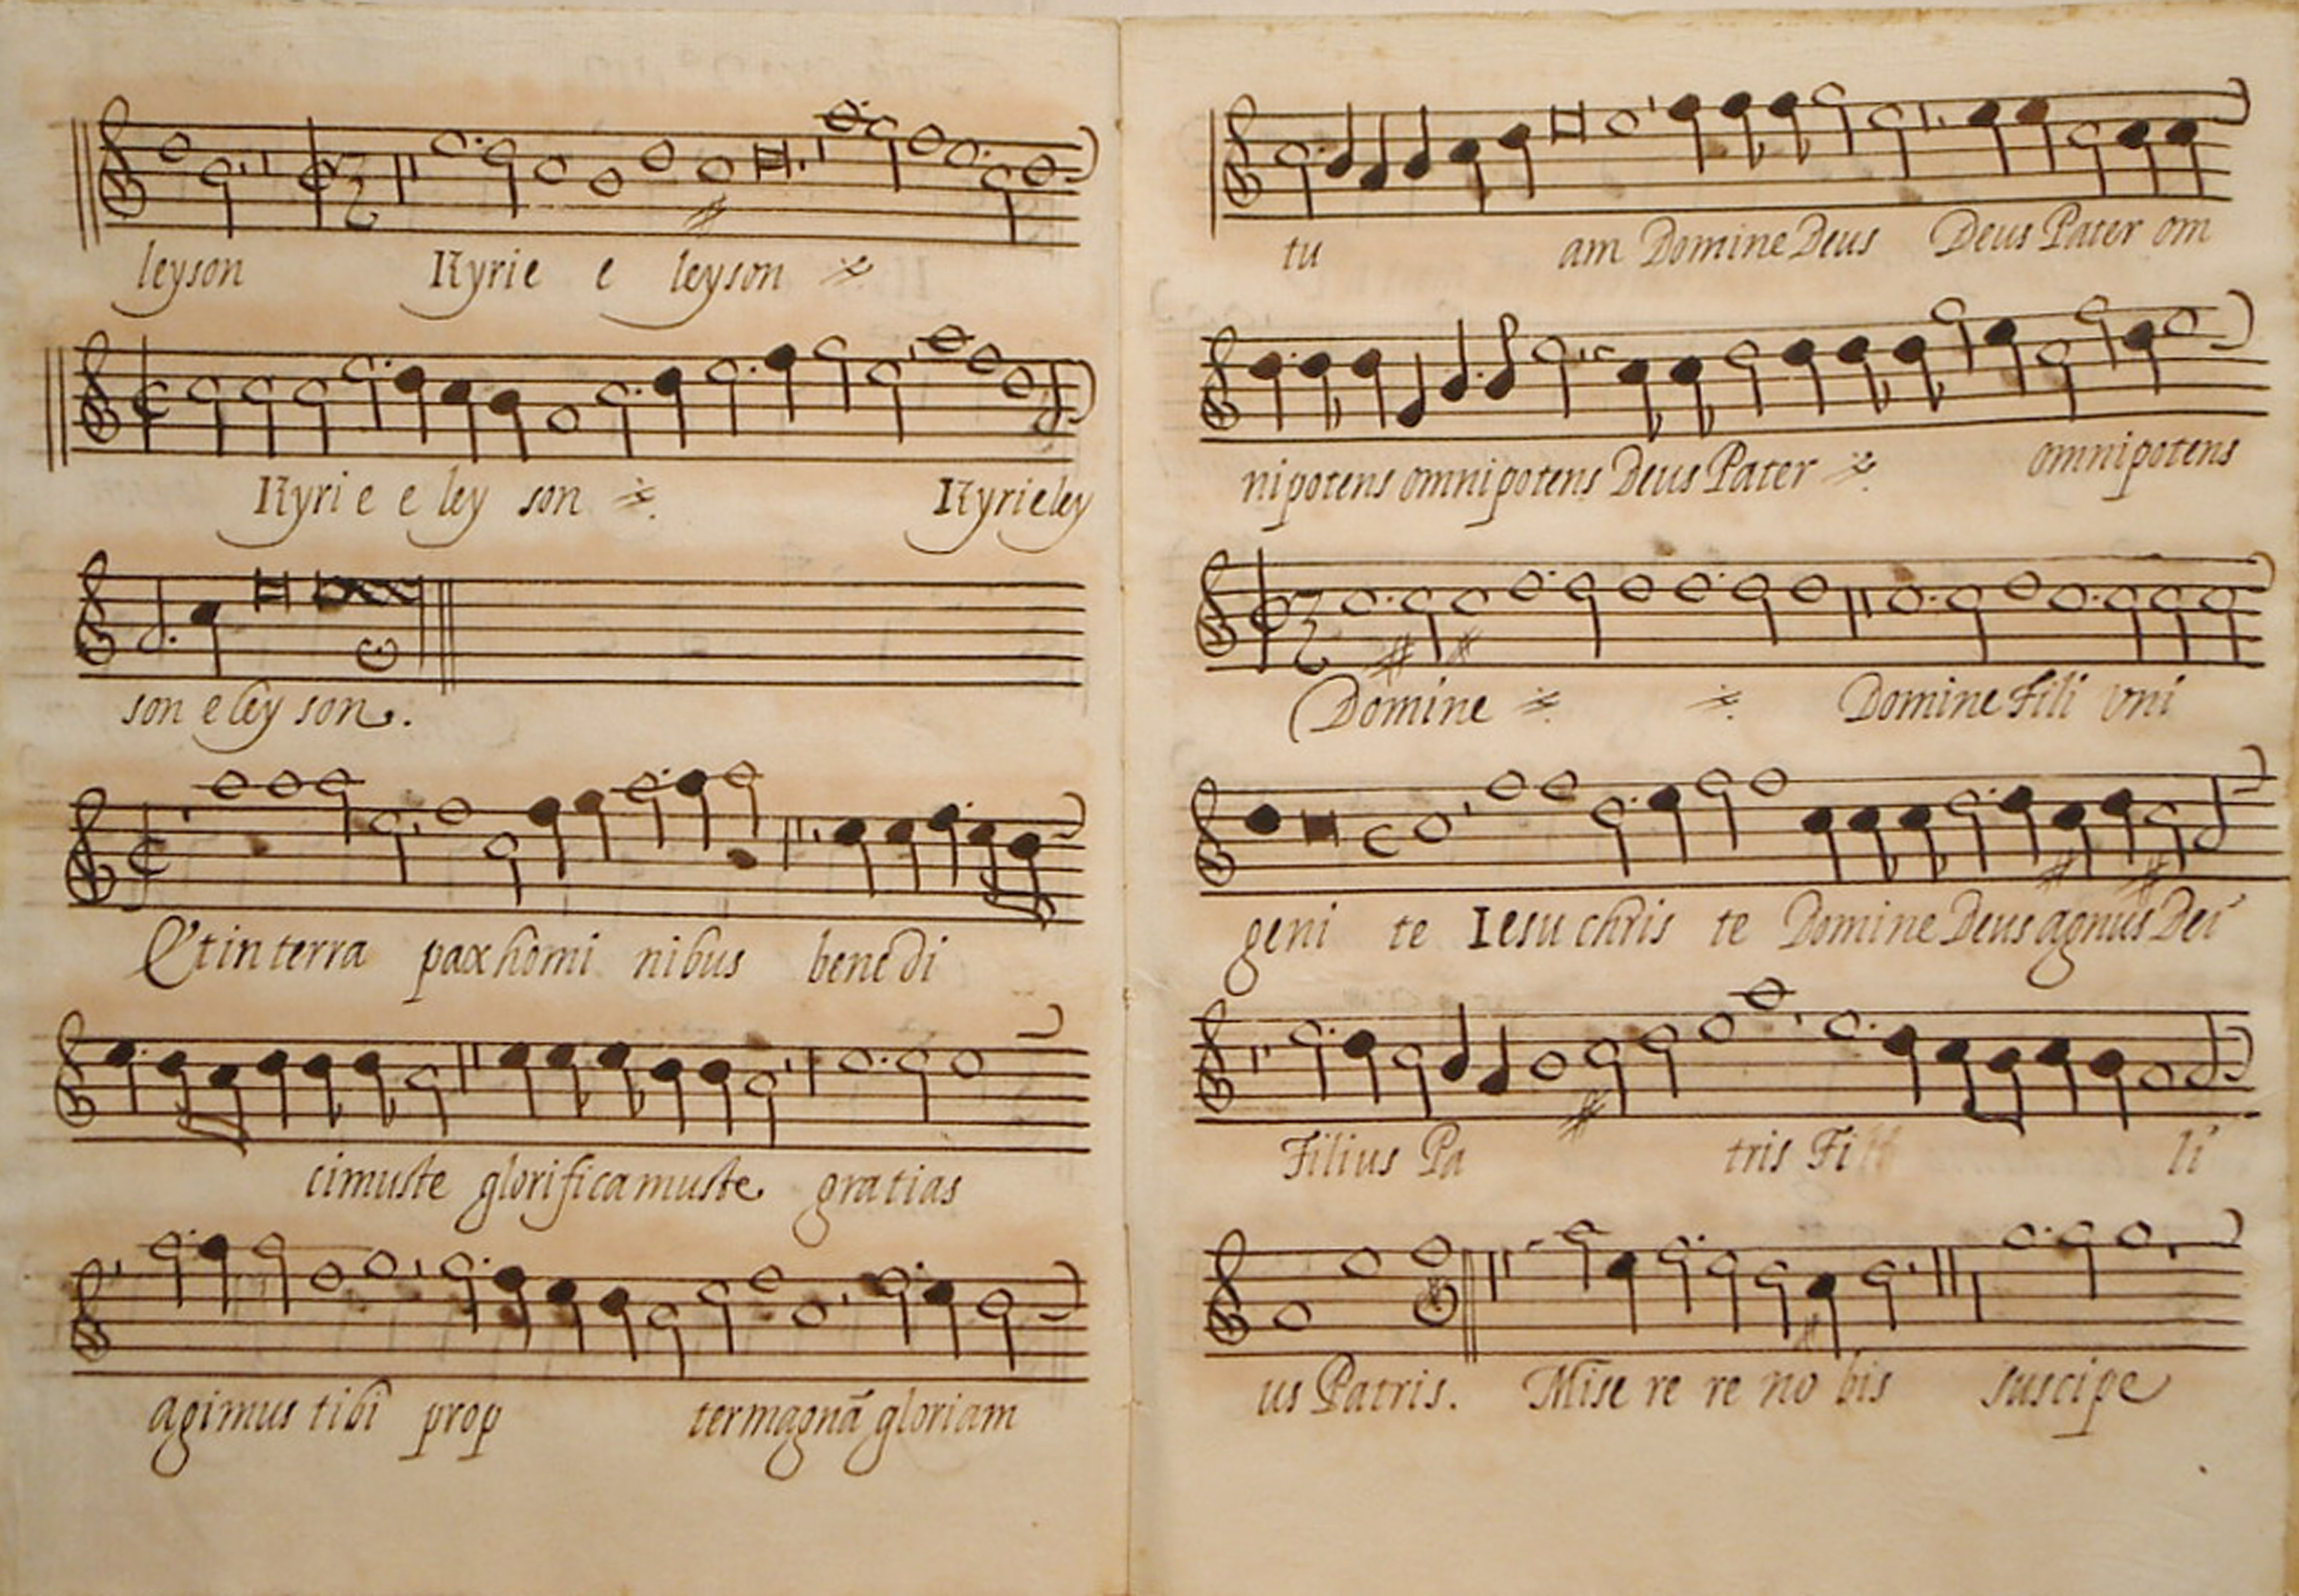 leyson Kyrie e leyson
Kyri e e ley son Kyrieley
son eley son.
Et in terra pax homi nibus bene di
cimuste glorificamuste gratias
agimus tibi prop ter magnã gloriam
tu am Domine Deus Deus Pater om
nipotens omnipotens Deus Pater omnipotens
Domine Domine Fili vni
geni te Iesu chris te Domine Deus agnus Dei
Filius Pa tris Fi li
us Patris. Mise re re no bis suscipe